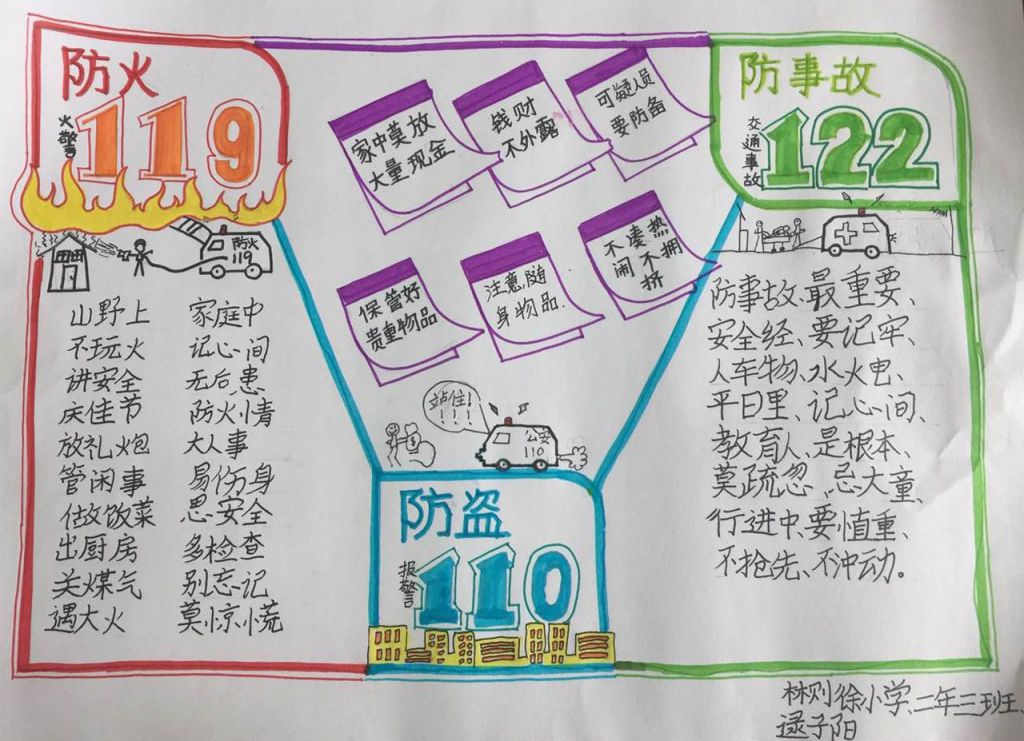 防火
火警
119
防火
119
山野上 家庭中
不玩火 记心间
讲安全 无后患
庆佳节 防火情
放礼炮 大人事
管闲事 易伤身
做饭菜 思安全
出厨房 多检查
关煤气 别忘记
遇大火 莫惊慌
家中莫放
大量现金
钱财
不外露
可疑人员
要防备
保管好
贵重物品
注意随
身物品.
不凑热
闹 不拥
挤
站住!
!!!
公安
110
防盗
报警
110
防事故
交通事故
122
防事故、最重要、
安全经、要记牢、
人车物、水火电、
平日里、记心间、
教育人、是根本、
莫疏忽、忌大童、
行进中、要慎重、
不抢先、不冲动。
林则徐小学、二年三班、
逯子阳